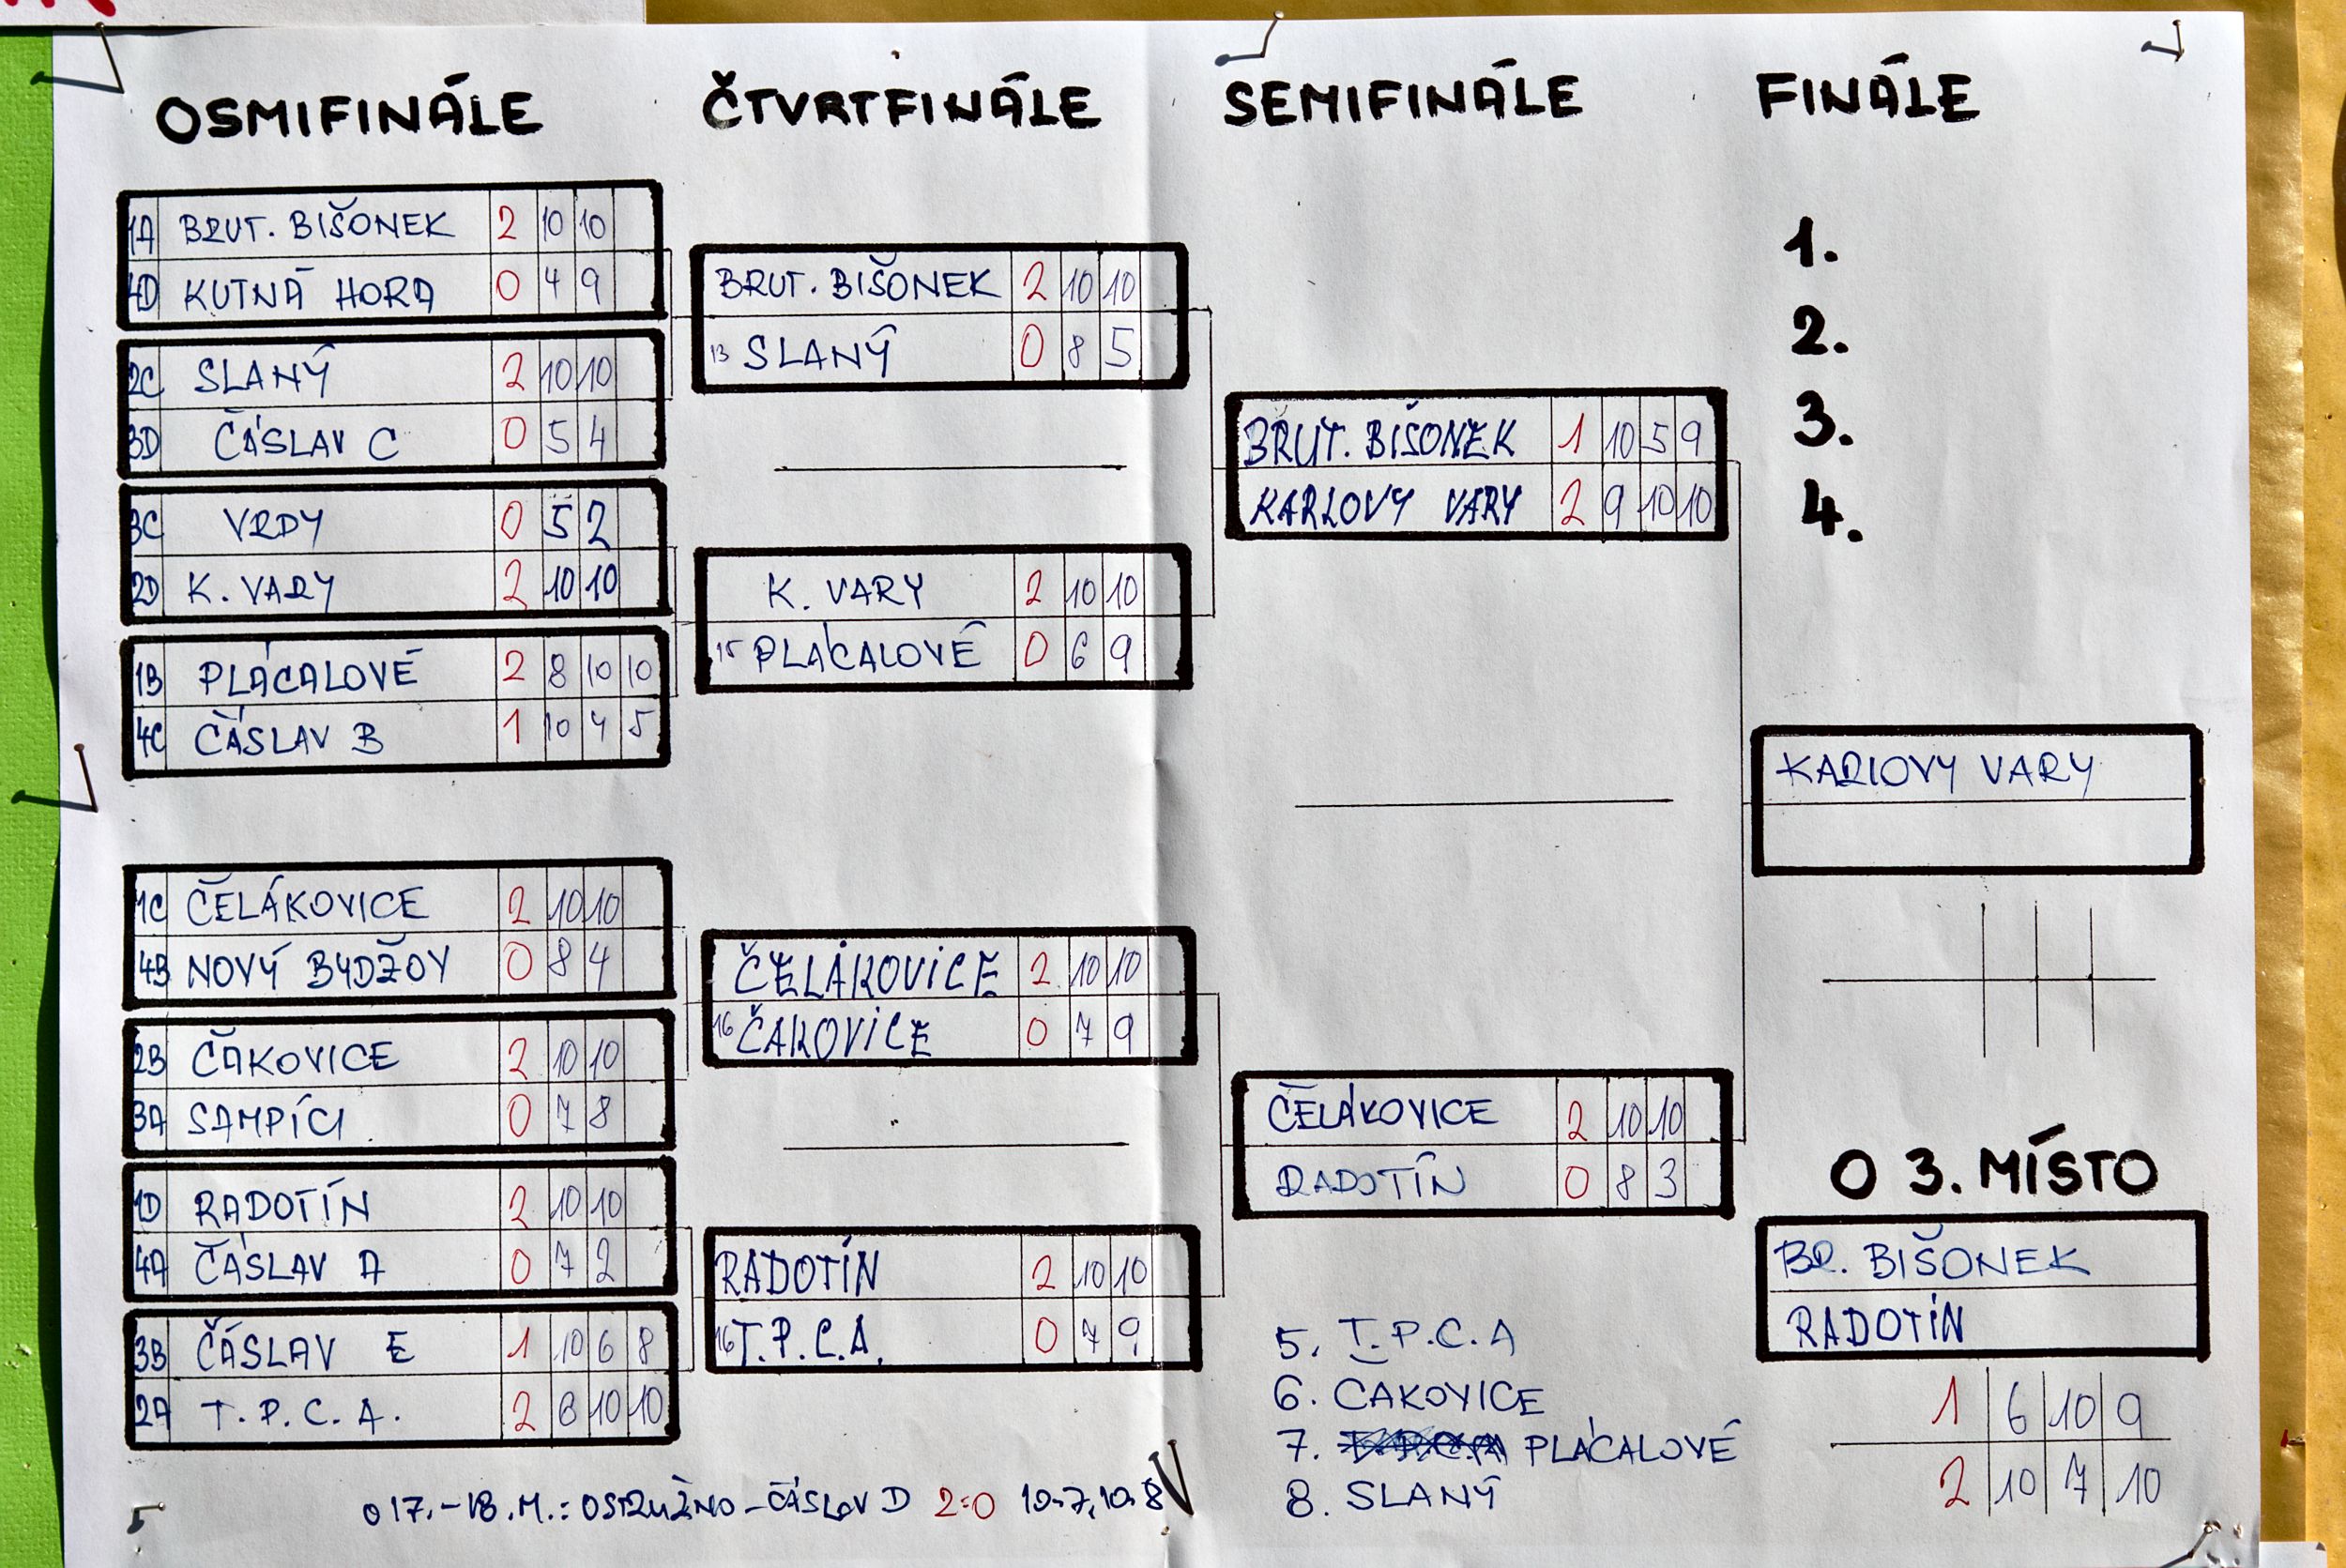 OSMIFINÁLE
1A BRUT. BIŠONEK 2 10 10
4D KUTNÁ HORA 0 4 9
2C SLANÝ 2 10 10
3D ČÁSLAV C 0 5 4
3C VRDY 0 5 2
2D K. VARY 2 10 10
1B PLÁCALOVÉ 2 8 10 10
4C ČÁSLAV B 1 10 4 5
1C ČELÁKOVICE 2 10 10
4B NOVÝ BYDŽOV 0 8 4
2B ČAKOVICE 2 10 10
3A SAMPÍCI 0 7 8
1D RADOTÍN 2 10 10
4A ČÁSLAV A 0 7 2
3B ČÁSLAV E 1 10 6 8
2A T.P.C.A. 2 8 10 10
ČTVRTFINÁLE
BRUT. BIŠONEK 2 10 10
13 SLANÝ 0 8 5
K. VARY 2 10 10
15 PLÁCALOVÉ 0 6 9
ČELÁKOVICE 2 10 10
16 ČAKOVICE 0 7 9
RADOTÍN 2 10 10
16 T.P.C.A. 0 7 9
SEMIFINÁLE
BRUT. BIŠONEK 1 10 5 9
KARLOVY VARY 2 9 10 10
ČELÁKOVICE 2 10 10
RADOTÍN 0 8 3
5. T.P.C.A
6. ČAKOVICE
7. PLÁCALOVÉ
8. SLANÝ
FINÁLE
1.
2.
3.
4.
KARLOVY VARY
O 3. MÍSTO
BR. BIŠONEK
RADOTÍN
1 6 10 9
2 10 7 10
O 17.-18.M.: OSTRUŽNO - ČÁSLAV D 2:0 10-7, 10-8